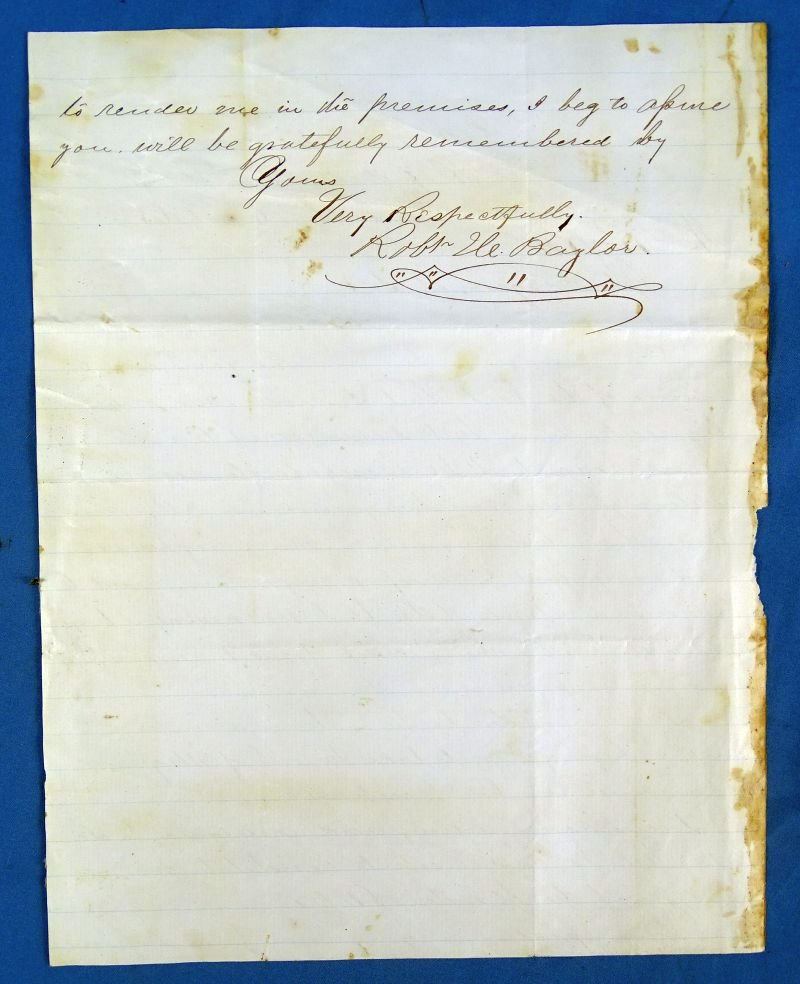 to render me in the premises, I beg to assure
you. will be gratefully remembered by
Yours
Very Respectfully.
Robt W. Baylor.